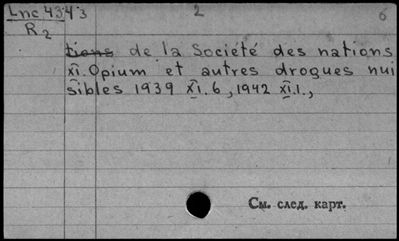 Lnc 4343 2 6
R2
tions de la Société des nations
XI. Opium et autres drogues nui
sibles 1939 XI.6, 1942 XI.1.,
См. след. карт.